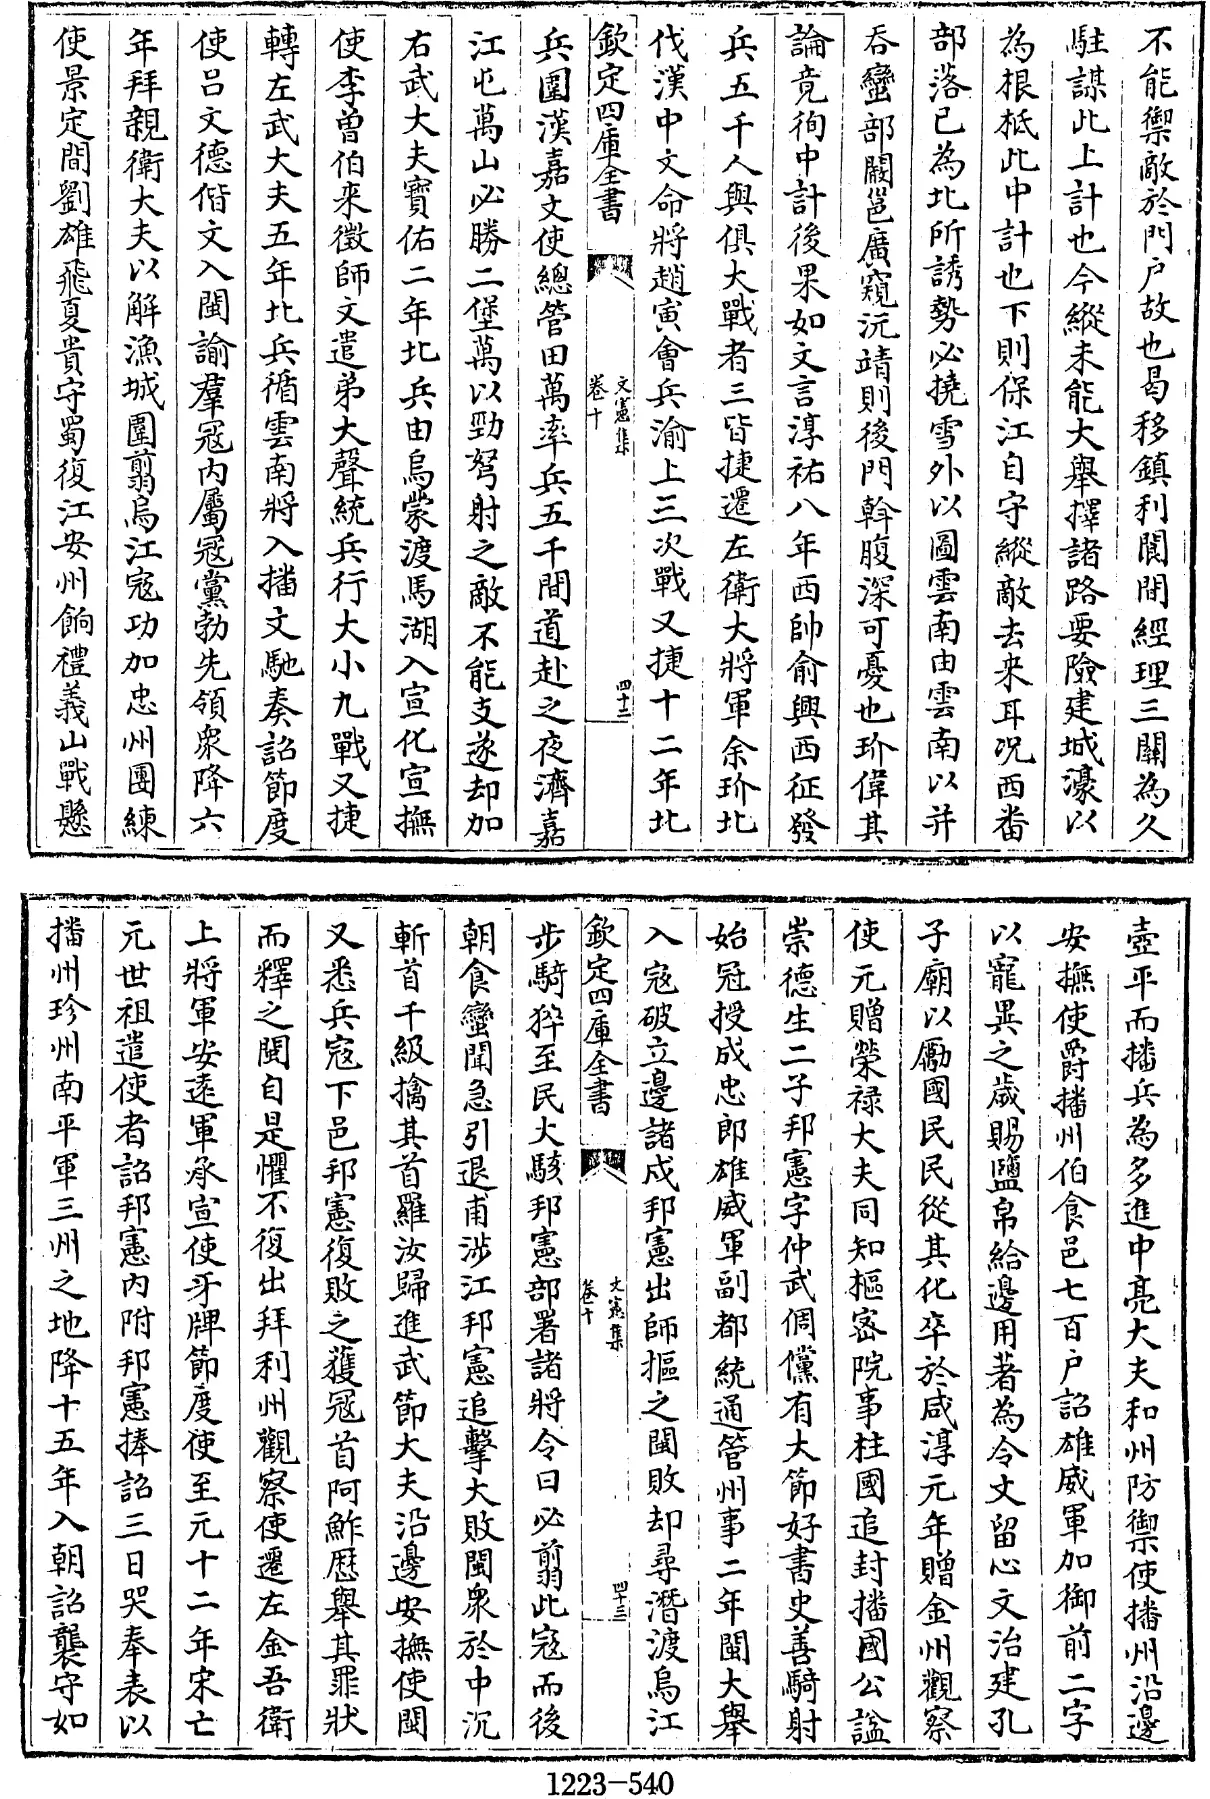 不能禦敵於門户故也曷移鎮利閬間經理三關為久
駐謀此上計也今縱未能大舉擇諸路要險建城濠以
為根柢此中計也下則保江自守縱敵去来耳况西畨
部落已為北所誘勢必撓雪外以圖雲南由雲南以并
吞蠻部闞邕廣窺沅靖則後門斡腹深可憂也玠偉其
論竟徇中計後果如文言淳祐八年西帥俞興西征發
兵五千人與俱大戰者三皆捷遷左衛大將軍余玠北
伐漢中文命將趙寅會兵渝上三次戰又捷十二年北
欽定四庫全書
文憲集
卷十
四十二
兵圍漢嘉文使總管田萬率兵五千間道赴之夜濟嘉
江屯萬山必勝二堡萬以勁弩射之敵不能支遂却加
右武大夫寳佑二年北兵由烏蒙渡馬湖入宣化宣撫
使李曽伯来徵師文遣弟大聲統兵行大小九戰又捷
轉左武大夫五年北兵循雲南將入播文馳奏詔節度
使吕文德偕文入閩諭羣冦内屬冦黨勃先領衆降六
年拜親衛大夫以解漁城圍翦烏江寇功加忠州團練
使景定間劉雄飛夏貴守蜀復江安州餉禮義山戰懸
壺平而播兵為多進中亮大夫和州防禦使播州沿邊
安撫使爵播州伯食邑七百户詔雄威軍加御前二字
以寵異之歲賜鹽帛給邊用著為令文留心文治建孔
子廟以勵國民民從其化卒於咸淳元年贈金州觀察
使元贈榮禄大夫同知樞密院事柱國追封播國公謚
崇德生二子邦憲字仲武倜儻有大節好書史善騎射
始冠授成忠郎雄威軍副都統通管州事二年閩大舉
入寇破立邊諸戍邦憲出師摳之閩敗却尋潛渡烏江
欽定四庫全書
文憲集
卷十
四十三
步騎猝至民大駭邦憲部署諸將令曰必翦此寇而後
朝食蠻聞急引退甫涉江邦憲追擊大敗閩衆於中沉
斬首千級擒其首羅汝歸進武節大夫沿邊安撫使閩
又悉兵寇下邑邦憲復敗之獲冦首阿鮓歴舉其罪狀
而釋之閩自是懼不復出拜利州觀察使遷左金吾衛
上將軍安逺軍承宣使牙牌節度使至元十二年宋亡
元世祖遣使者詔邦憲内附邦憲捧詔三日哭奉表以
播州珍州南平軍三州之地降十五年入朝詔襲守如
1223-540